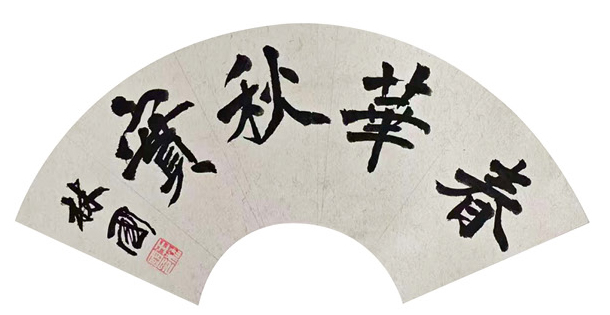 春華秋實
國